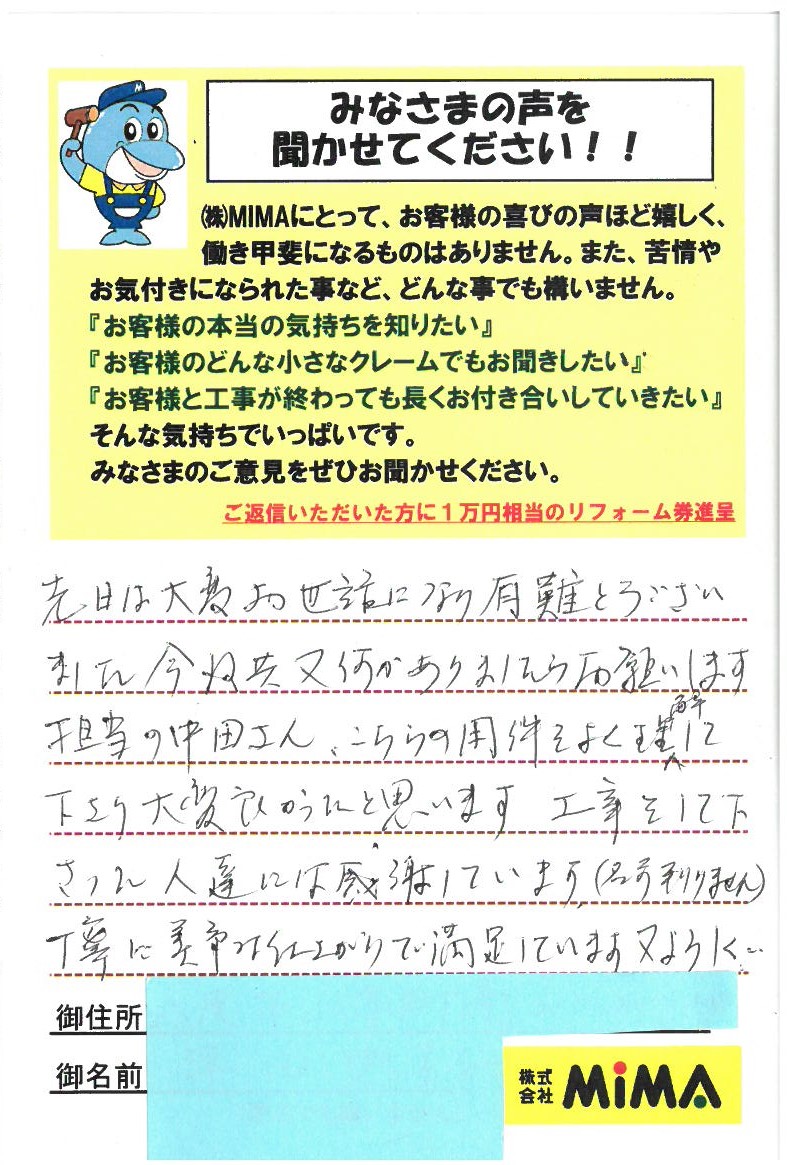 みなさまの声を
聞かせてください！！
㈱MIMAにとって、お客様の喜びの声ほど嬉しく、
働き甲斐になるものはありません。また、苦情や
お気付きになられた事など、どんな事でも構いません。
『お客様の本当の気持ちを知りたい』
『お客様のどんな小さなクレームでもお聞きしたい』
『お客様と工事が終わっても長くお付き合いしていきたい』
そんな気持ちでいっぱいです。
みなさまのご意見をぜひお聞かせください。
ご返信いただいた方に１万円相当のリフォーム券進呈
先日は大変お世話になり有難とうござい
ました 今後共又何かありましたらお願いします
担当の中田さん、こちらの用件をよく理解して
下さり大変良かったと思います 工事をして下
さった人達には感謝しています（名前判りません）
丁寧に 仕上がりで満足しています 又よろしく
御住所
御名前
M
株式会社 MiMA